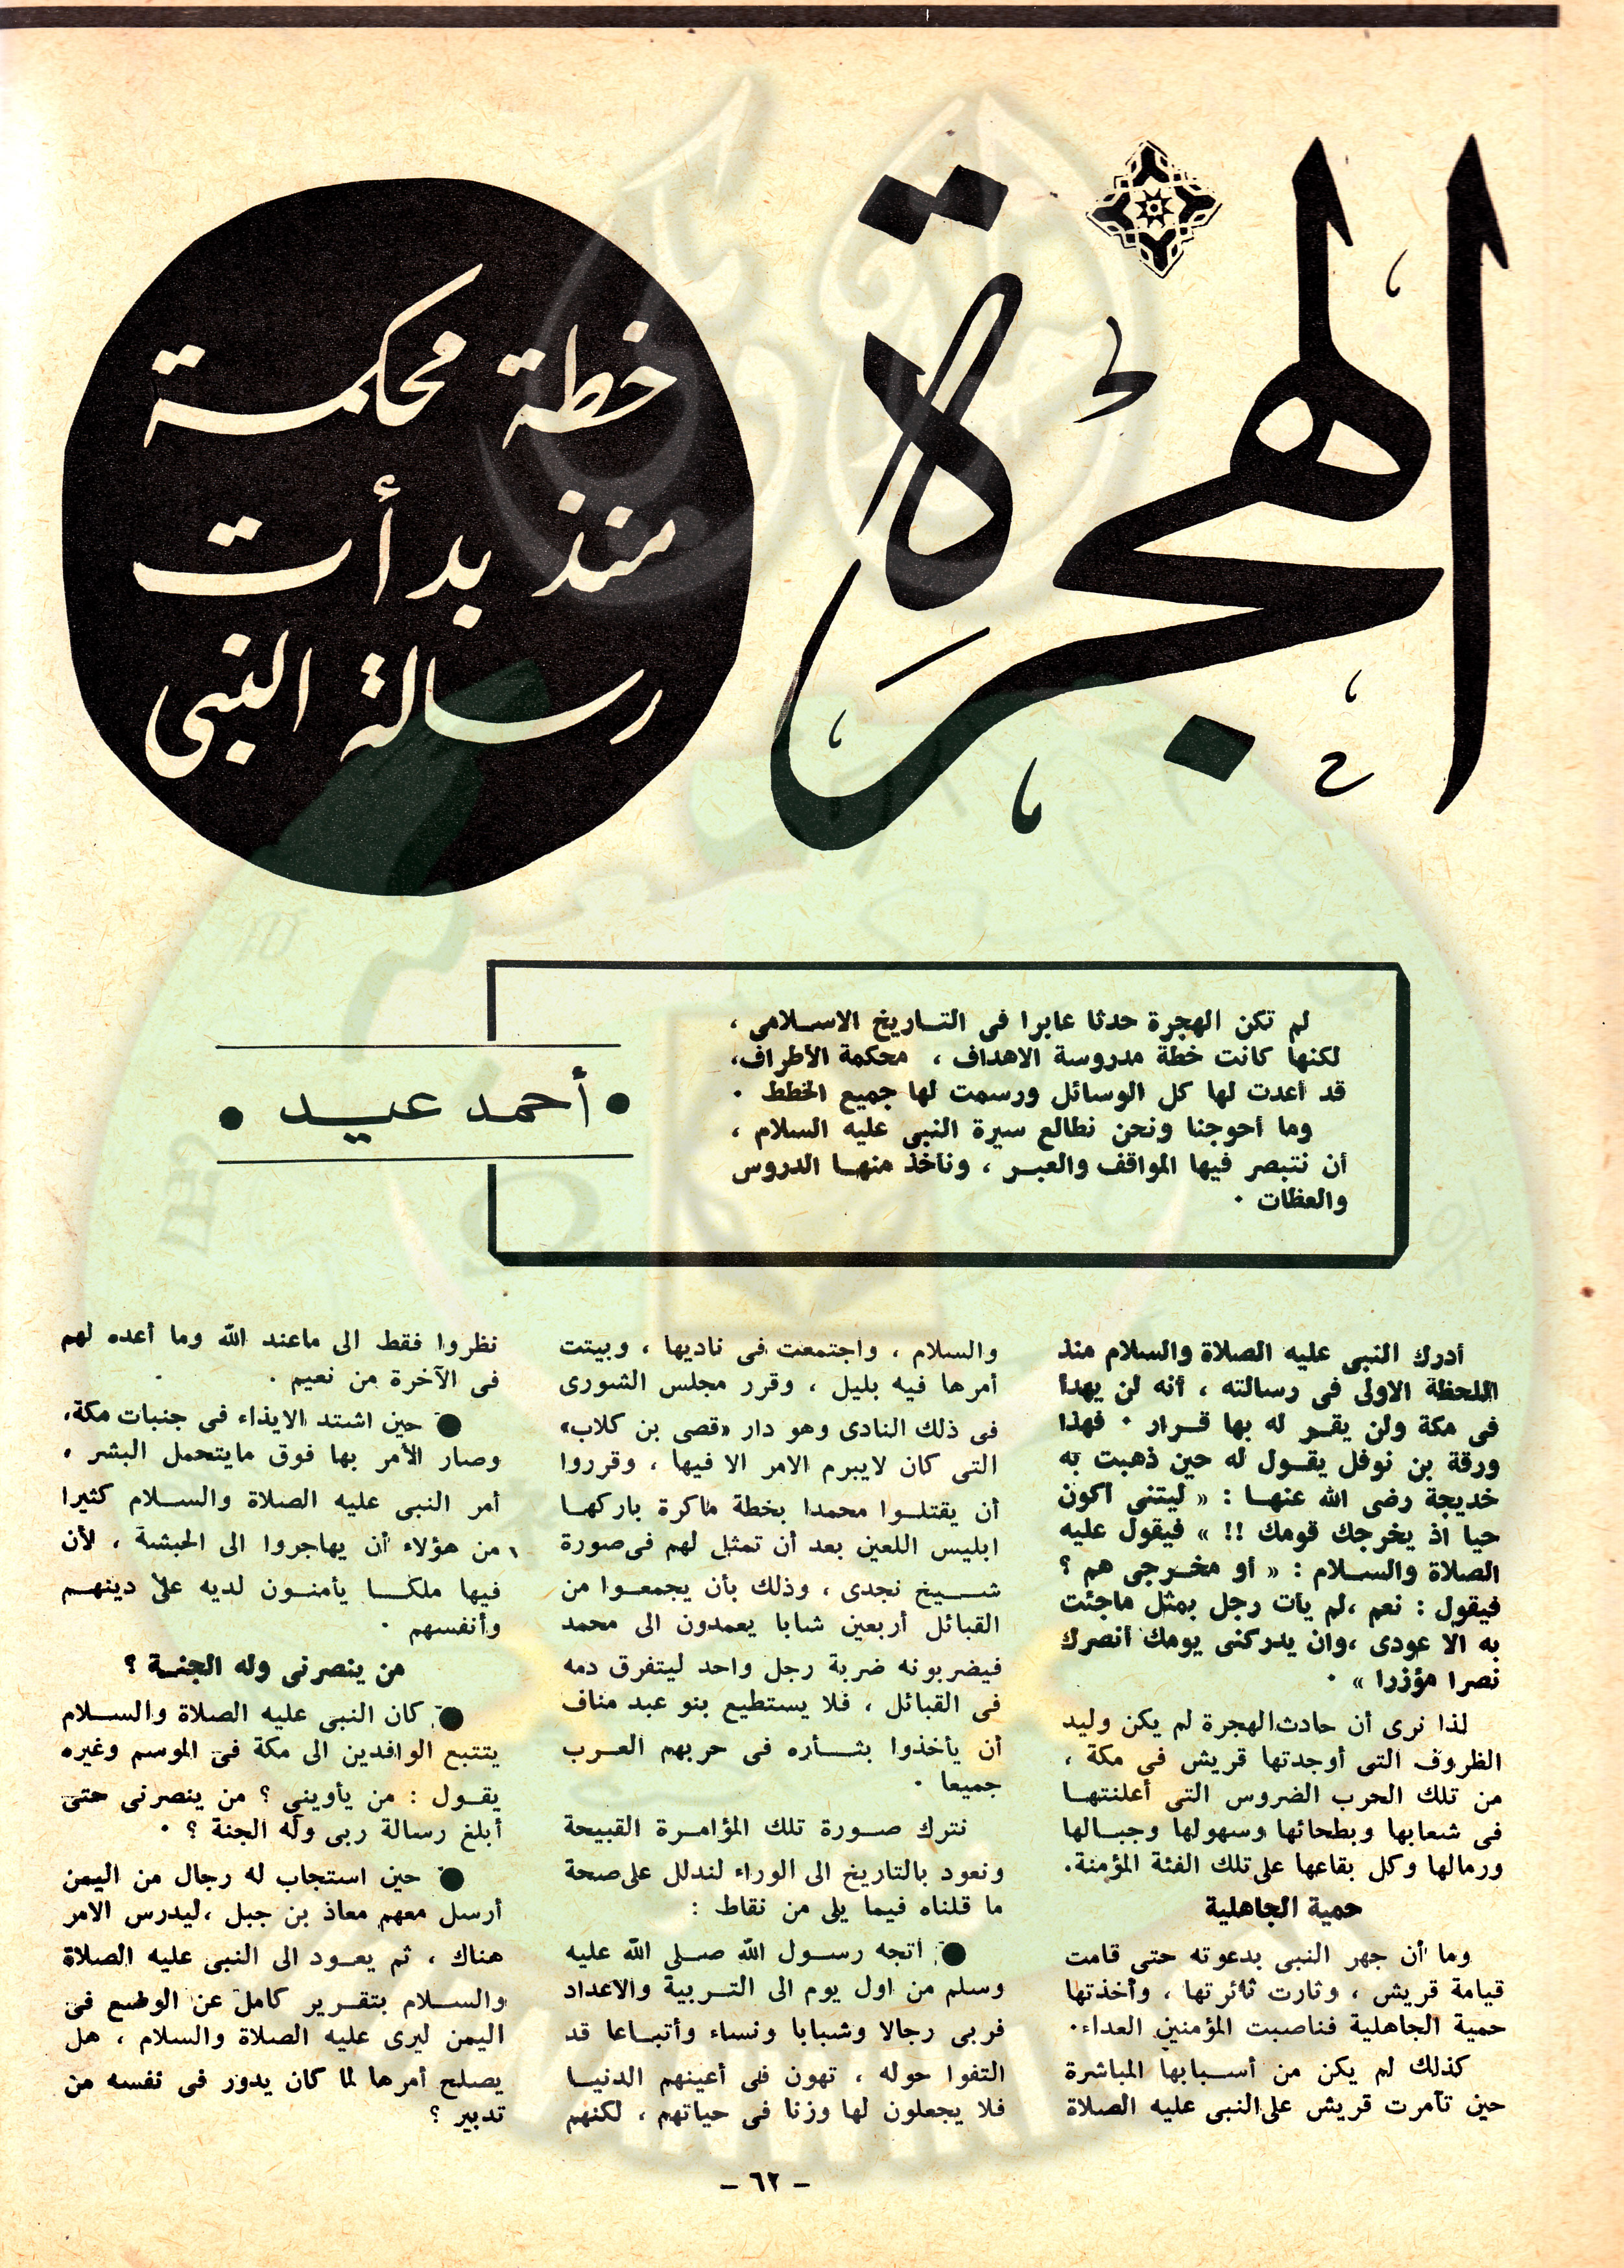 الهجرة
خطة محكمة
منذ بدأت
رسالة النبى
لم تكن الهجرة حدثا عابرا فى التاريخ الاسلامى ،
لكنها كانت خطة مدروسة الاهداف ، محكمة الأطراف،
قد أعدت لها كل الوسائل ورسمت لها جميع الخطط .
وما أحوجنا ونحن نطالع سيرة النبى عليه السلام ،
أن نتبصر فيها المواقف والعبر ، ونأخذ منها الدروس
والعظات .
• أحمد عيد •
أدرك النبى عليه الصلاة والسلام منذ
اللحظة الاولى فى رسالته ، أنه لن يهدأ
فى مكة ولن يقر له بها قرار . فهذا
ورقة بن نوفل يقول له حين ذهبت به
خديجة رضى الله عنها : « ليتنى أكون
حيا اذ يخرجك قومك !! » فيقول عليه
الصلاة والسلام : « أو مخرجى هم ؟
فيقول : نعم ،لم يأت رجل بمثل ماجئت
به الا عودى ،وان يدركنى يومك أنصرك
نصرا مؤزرا » .
لذا نرى أن حادث الهجرة لم يكن وليد
الظروف التى أوجدتها قريش فى مكة ،
من تلك الحرب الضروس التى أعلنتها
فى شعابها وبطحائها وسهولها وجبالها
ورمالها وكل بقاعها على تلك الفئة المؤمنة.
حمية الجاهلية
وما أن جهر النبى بدعوته حتى قامت
قيامة قريش ، وثارت ثائرتها ، وأخذتها
حمية الجاهلية فناصبت المؤمنين العداء.
كذلك لم يكن من أسبابها المباشرة
حين تآمرت قريش على النبى عليه الصلاة
والسلام ، واجتمعت فى ناديها ، وبيتت
أمرها فيه بليل ، وقرر مجلس الشورى
فى ذلك النادى وهو دار «قصى بن كلاب»
التى كان لايبرم الامر الا فيها ، وقرروا
أن يقتلوا محمدا بخطة ماكرة باركها
ابليس اللعين بعد أن تمثل لهم فى صورة
شيخ نجدى ، وذلك بأن يجمعوا من
القبائل أربعين شابا يعمدون الى محمد
فيضربونه ضربة رجل واحد ليتفرق دمه
فى القبائل ، فلا يستطيع بنو عبد مناف
أن يأخذوا بثأره فى حربهم العرب
جميعا .
نترك صورة تلك المؤامرة القبيحة
ونعود بالتاريخ الى الوراء لندلل على صحة
ما قلناه فيما يلى من نقاط :
● اتجه رسول الله صلى الله عليه
وسلم من اول يوم الى التربية والاعداد
فربى رجالا وشبابا ونساء وأتباعا قد
التفوا حوله ، تهون فى أعينهم الدنيا
فلا يجعلون لها وزنا فى حياتهم ، لكنهم
نظروا فقط الى ماعند الله وما أعده لهم
فى الآخرة من نعيم .
● حين اشتد الايذاء فى جنبات مكة،
وصار الأمر بها فوق مايتحمل البشر ،
أمر النبى عليه الصلاة والسلام كثيرا
من هؤلاء أن يهاجروا الى الحبشة ، لأن
فيها ملكا يأمنون لديه على دينهم
وأنفسهم .
من ينصرنى وله الجنة ؟
● كان النبى عليه الصلاة والسلام
يتتبع الوافدين الى مكة فى الموسم وغيره
يقول : من يأوينى ؟ من ينصرنى حتى
أبلغ رسالة ربى وله الجنة ؟ .
● حين استجاب له رجال من اليمن
أرسل معهم معاذ بن جبل ،ليدرس الامر
هناك ، ثم يعود الى النبى عليه الصلاة
والسلام بتقرير كامل عن الوضع فى
اليمن ليرى عليه الصلاة والسلام ، هل
يصلح أمرها لما كان يدور فى نفسه من
تدبير ؟
– ٦٢ –